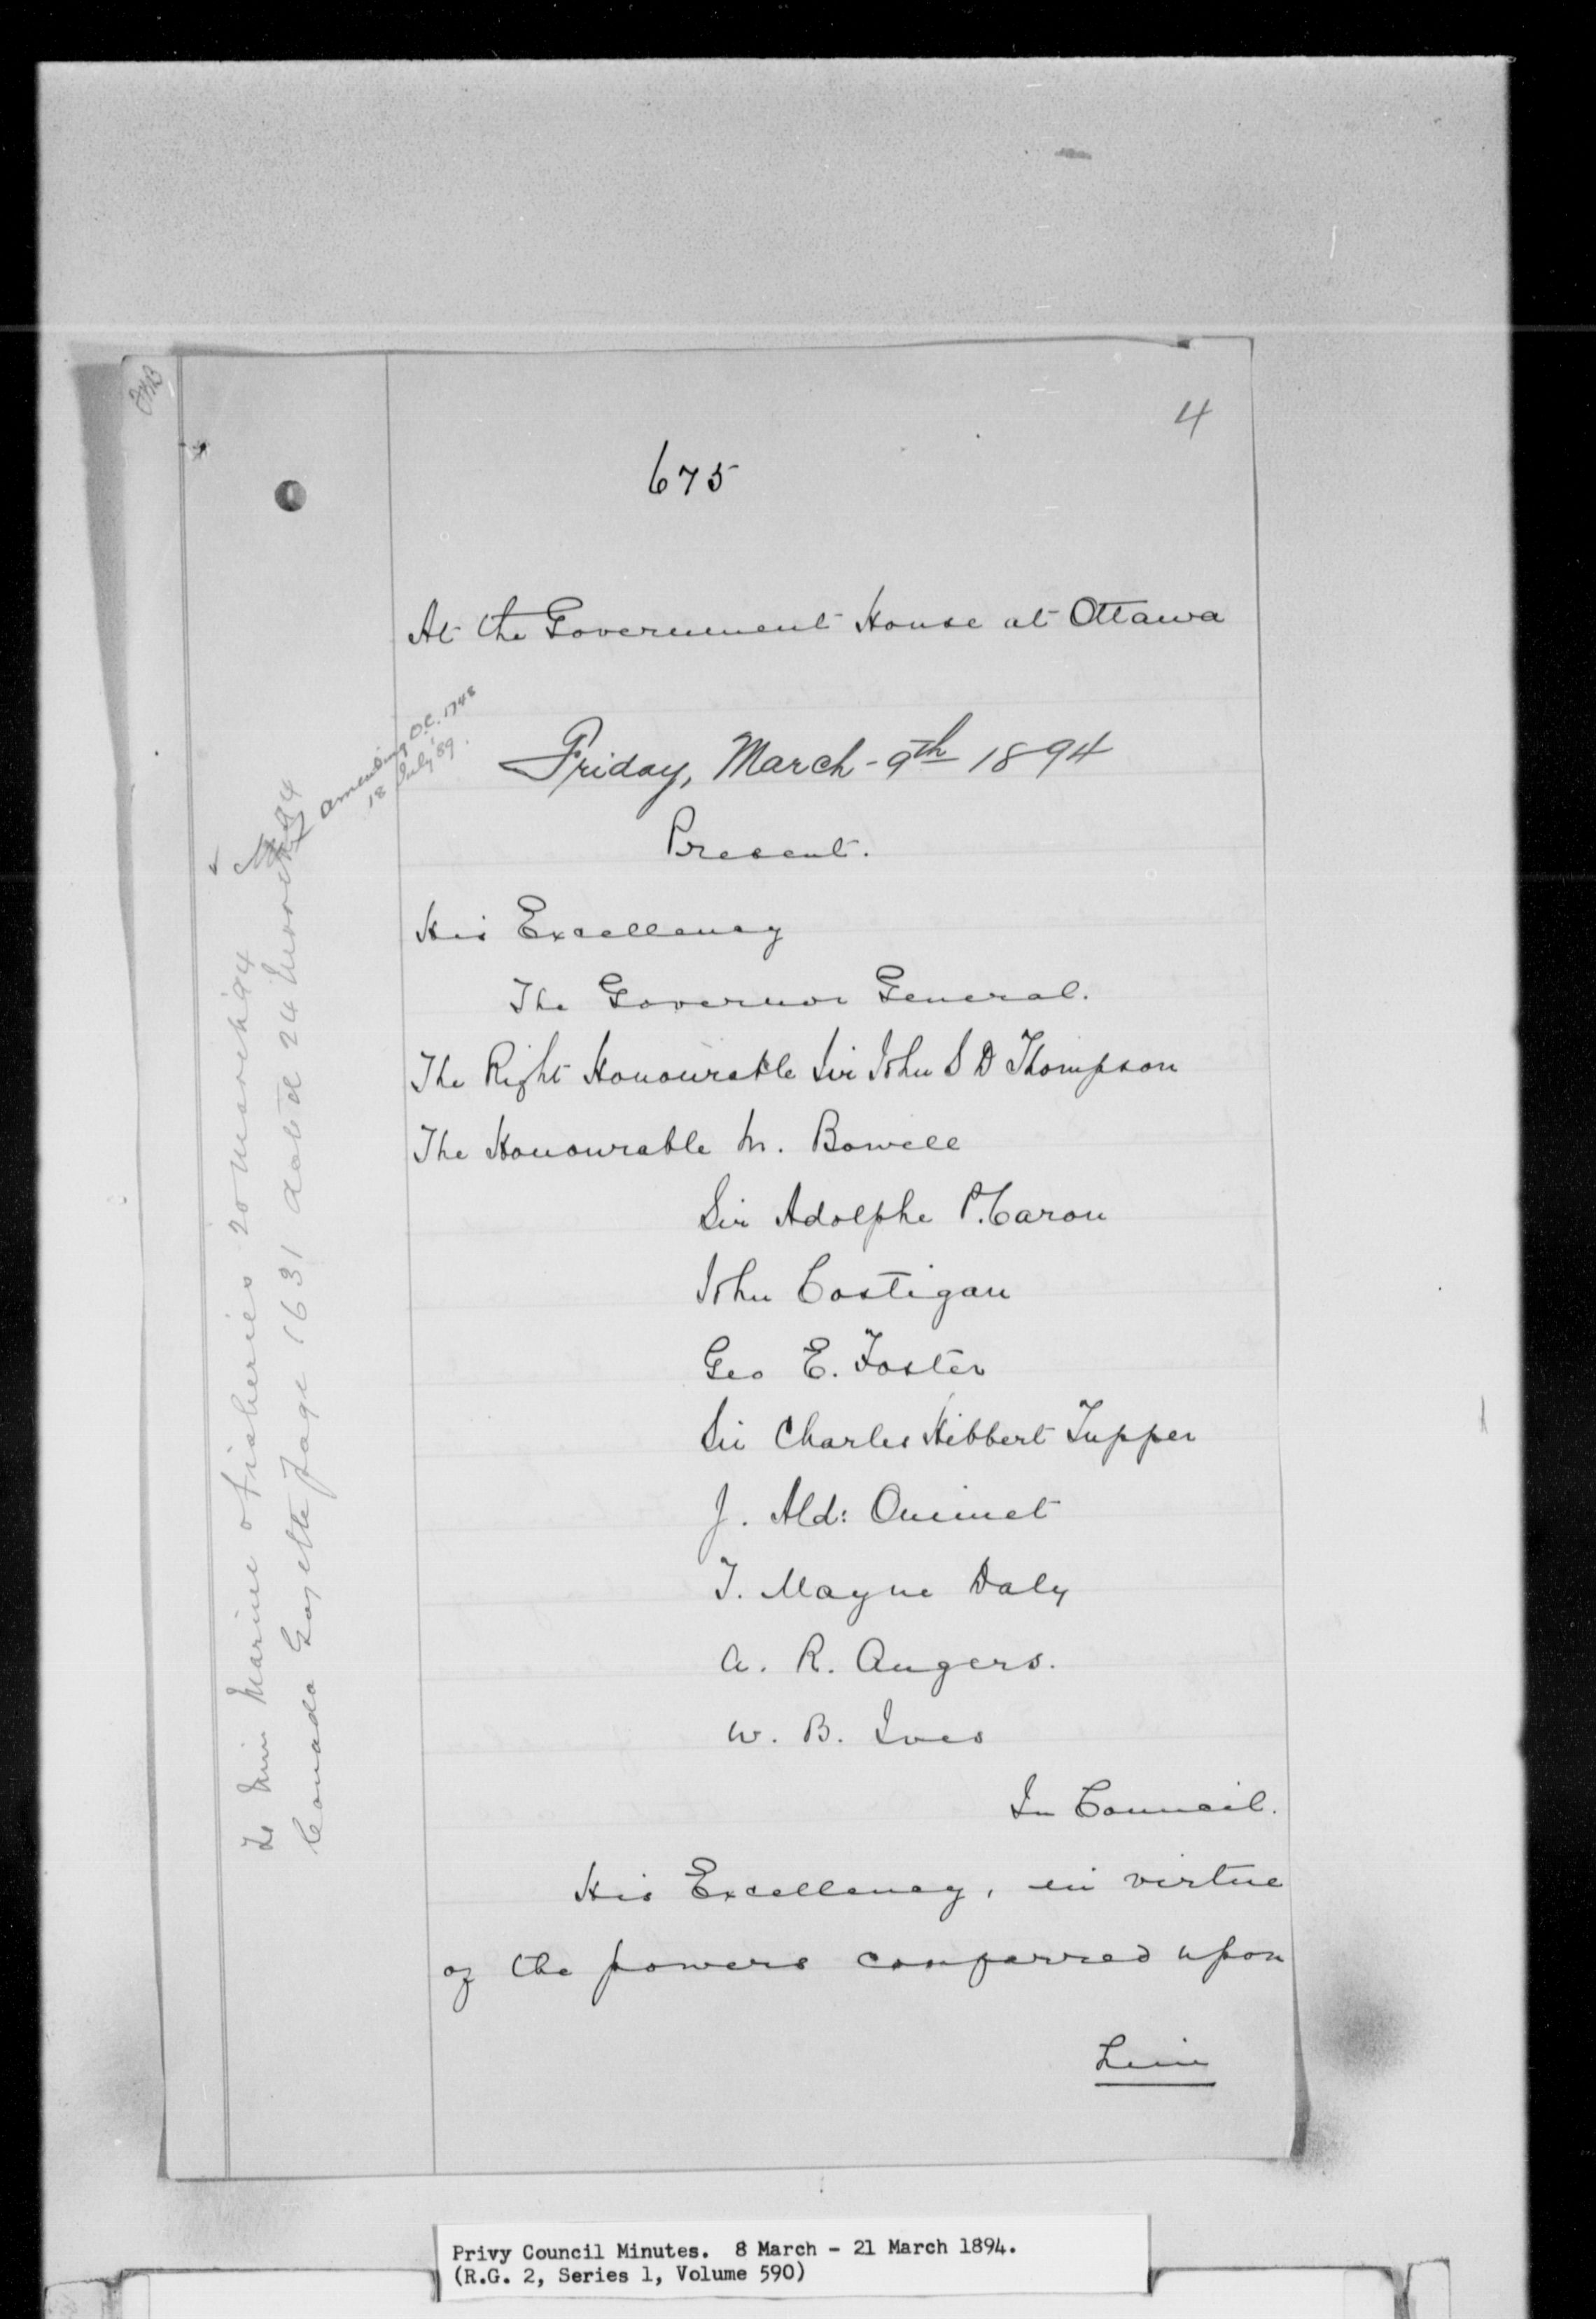 4
675
At the Government House at Ottawa
Friday, March 9th 1894
Present.
His Excellency
The Governor General.
The Right Honourable Sir John S D Thompson
The Honourable M. Bowell
Sir Adolphe P. Caron
John Costigan
Geo E. Foster
Sir Charles Hibbert Tupper
J. Ald: Ouimet
T. Mayne Daly
A. R. Angers.
W. B. Ives
In Council.
His Excellency, in virtue
of the powers conferred upon
him
Amending O.C. 1748
18 July '89.
To Min Marine & Fisheries 20 March '94
Canada Gazette page 1631 dated 24 March '94
Privy Council Minutes. 8 March - 21 March 1894.
(R.G. 2, Series 1, Volume 590)